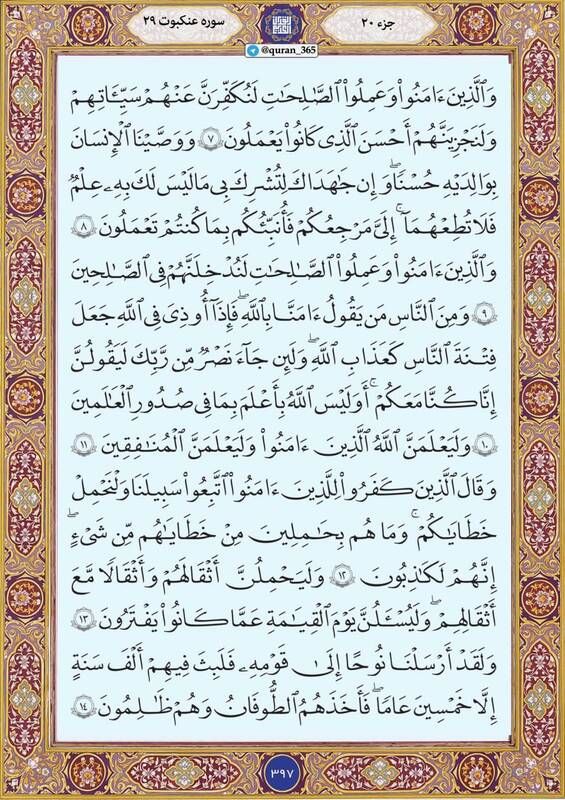 جزء ۲۰
سوره عنکبوت ۲۹
@quran_365
وَٱلَّذِينَ ءَامَنُوا۟ وَعَمِلُوا۟ ٱلصَّـٰلِحَـٰتِ لَنُكَفِّرَنَّ عَنْهُمْ سَيِّـَٔاتِهِمْ
وَلَنَجْزِيَنَّهُمْ أَحْسَنَ ٱلَّذِى كَانُوا۟ يَعْمَلُونَ ۷ وَوَصَّيْنَا ٱلْإِنسَـٰنَ
بِوَٰلِدَيْهِ حُسْنًا ۖ وَإِن جَـٰهَدَاكَ لِتُشْرِكَ بِى مَا لَيْسَ لَكَ بِهِۦ عِلْمٌ
فَلَا تُطِعْهُمَآ ۚ إِلَىَّ مَرْجِعُكُمْ فَأُنَبِّئُكُم بِمَا كُنتُمْ تَعْمَلُونَ ۸
وَٱلَّذِينَ ءَامَنُوا۟ وَعَمِلُوا۟ ٱلصَّـٰلِحَـٰتِ لَنُدْخِلَنَّهُمْ فِى ٱلصَّـٰلِحِينَ
۹ وَمِنَ ٱلنَّاسِ مَن يَقُولُ ءَامَنَّا بِٱللَّهِ ۖ فَإِذَآ أُوذِىَ فِى ٱللَّهِ جَعَلَ
فِتْنَةَ ٱلنَّاسِ كَعَذَابِ ٱللَّهِ ۖ وَلَئِن جَآءَ نَصْرٌ مِّن رَّبِّكَ لَيَقُولُنَّ
إِنَّا كُنَّا مَعَكُمْ ۚ أَوَلَيْسَ ٱللَّهُ بِأَعْلَمَ بِمَا فِى صُدُورِ ٱلْعَـٰلَمِينَ
۱۰ وَلَيَعْلَمَنَّ ٱللَّهُ ٱلَّذِينَ ءَامَنُوا۟ وَلَيَعْلَمَنَّ ٱلْمُنَـٰفِقِينَ ۱۱
وَقَالَ ٱلَّذِينَ كَفَرُوا۟ لِلَّذِينَ ءَامَنُوا۟ ٱتَّبِعُوا۟ سَبِيلَنَا وَلْنَحْمِلْ
خَطَـٰيَـٰكُمْ ۚ وَمَا هُم بِحَـٰمِلِينَ مِنْ خَطَـٰيَـٰهُم مِّن شَىْءٍ ۖ
إِنَّهُمْ لَكَـٰذِبُونَ ۱۲ وَلَيَحْمِلُنَّ أَثْقَالَهُمْ وَأَثْقَالًا مَّعَ
أَثْقَالِهِمْ ۖ وَلَيُسْـَٔلُنَّ يَوْمَ ٱلْقِيَـٰمَةِ عَمَّا كَانُوا۟ يَفْتَرُونَ ۱۳
وَلَقَدْ أَرْسَلْنَا نُوحًا إِلَىٰ قَوْمِهِۦ فَلَبِثَ فِيهِمْ أَلْفَ سَنَةٍ
إِلَّا خَمْسِينَ عَامًا ۖ فَأَخَذَهُمُ ٱلطُّوفَانُ وَهُمْ ظَـٰلِمُونَ ۱۴
۳۹۷